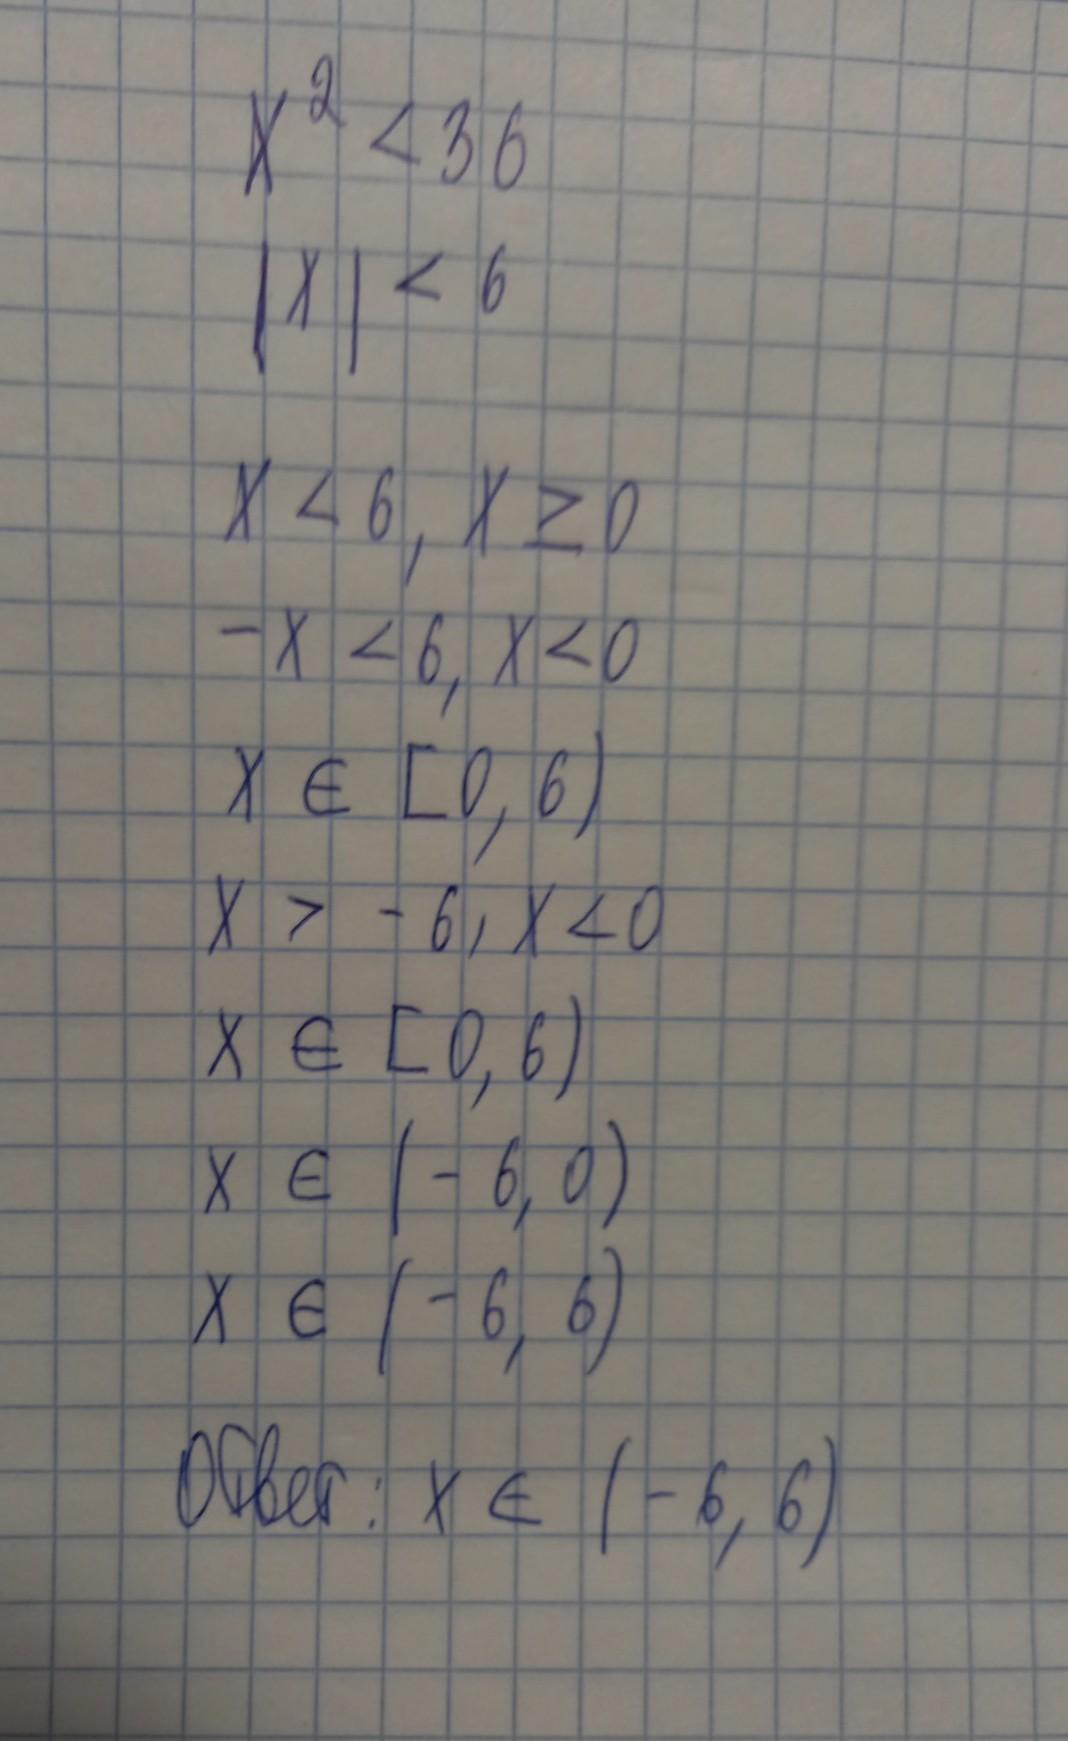 x² < 36
|x| < 6
x < 6, x ≥ 0
-x < 6, x < 0
x ∈ [0, 6)
x > -6, x < 0
x ∈ [0, 6)
x ∈ (-6, 0)
x ∈ (-6, 6)
Ответ: x ∈ (-6, 6)